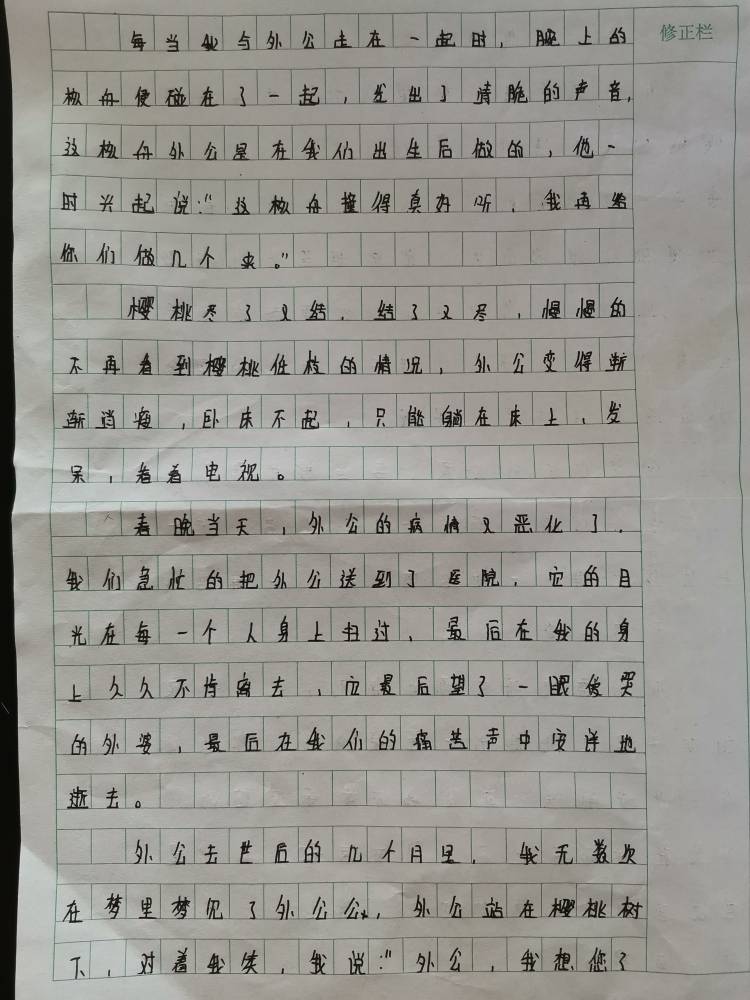 修正栏
每当我与外公走在一起时，腕上的
核舟便碰在了一起，发出了清脆的声音，
这核舟外公是在我们出生后做的，他一
时兴起说："这核舟撞得真好听，我再给
你们做几个来。"
樱桃尽了又结，结了又尽，慢慢的
不再看到樱桃低枝的情况，外公变得渐
渐消瘦，卧床不起，只能躺在床上，发
呆，看着电视。
春晚当天，外公的病情又恶化了，
我们急忙的把外公送到了医院，它的目
光在每一个人身上扫过，最后在我的身
上久久不肯离去，应最后望了一眼
哭
的外婆，最后在我们的痛苦声中安详地
逝去。
外公去世后的几个月里，我无数次
在梦里梦见了外公，外公站在樱桃树
下，对着我笑，我说："外公，我想您了